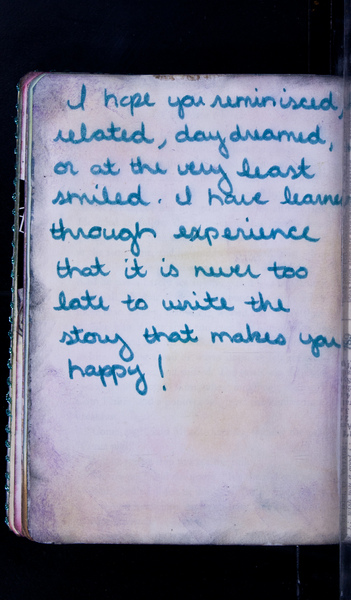 I hope you reminisced,
related, daydreamed,
or at the very least
smiled. I have learne
through experience
that it is never too
late to write the
story that makes you
happy!